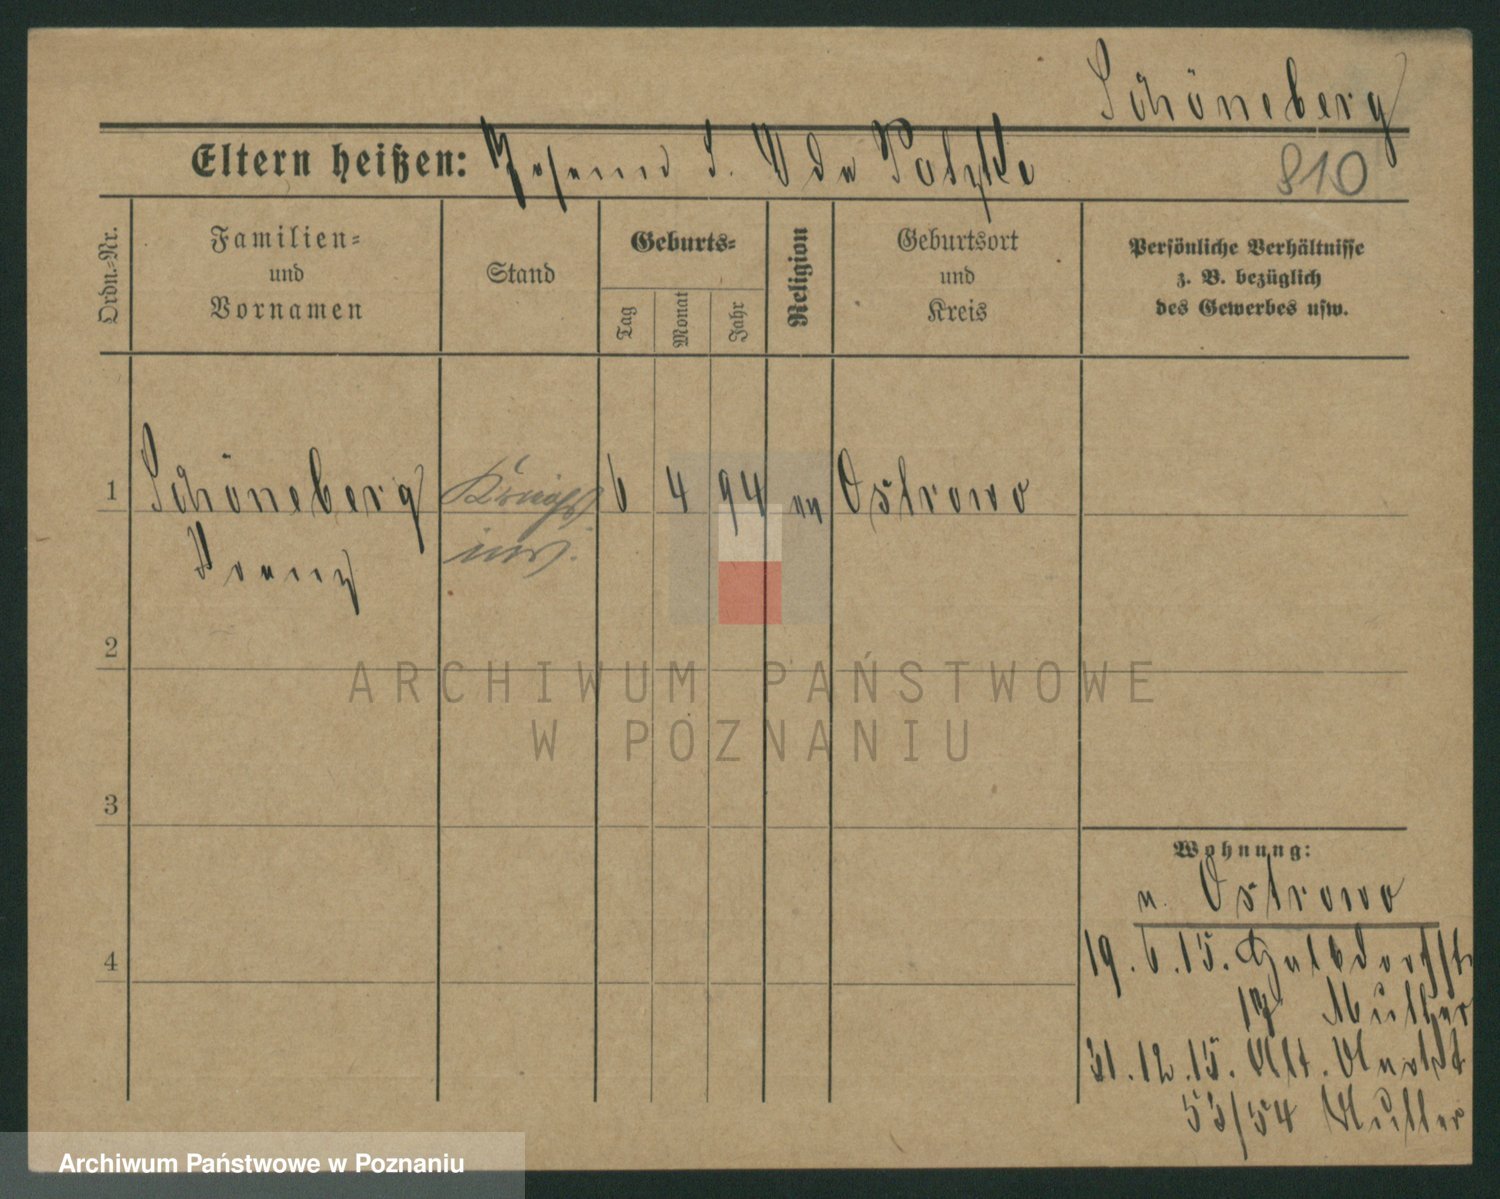 Schöneberg
Eltern heißen: Ida
810
Ordn.-Nr.
Familien-
und
Vornamen
Stand
Geburts-
Tag
Monat
Jahr
Religion
Geburtsort
und
Kreis
Persönliche Verhältnisse
z. B. bezüglich
des Gewerbes usw.
1 Schöneberg 6 4 94 Ostrowo
2
3
4
Wohnung:
v. Ostrowo
19.6.15. Halbdorfstr
17 Mutter
31.12.15. Alt. Markt
53/54 Mutter
ARCHIWUM PAŃSTWOWE
W POZNANIU
Archiwum Państwowe w Poznaniu